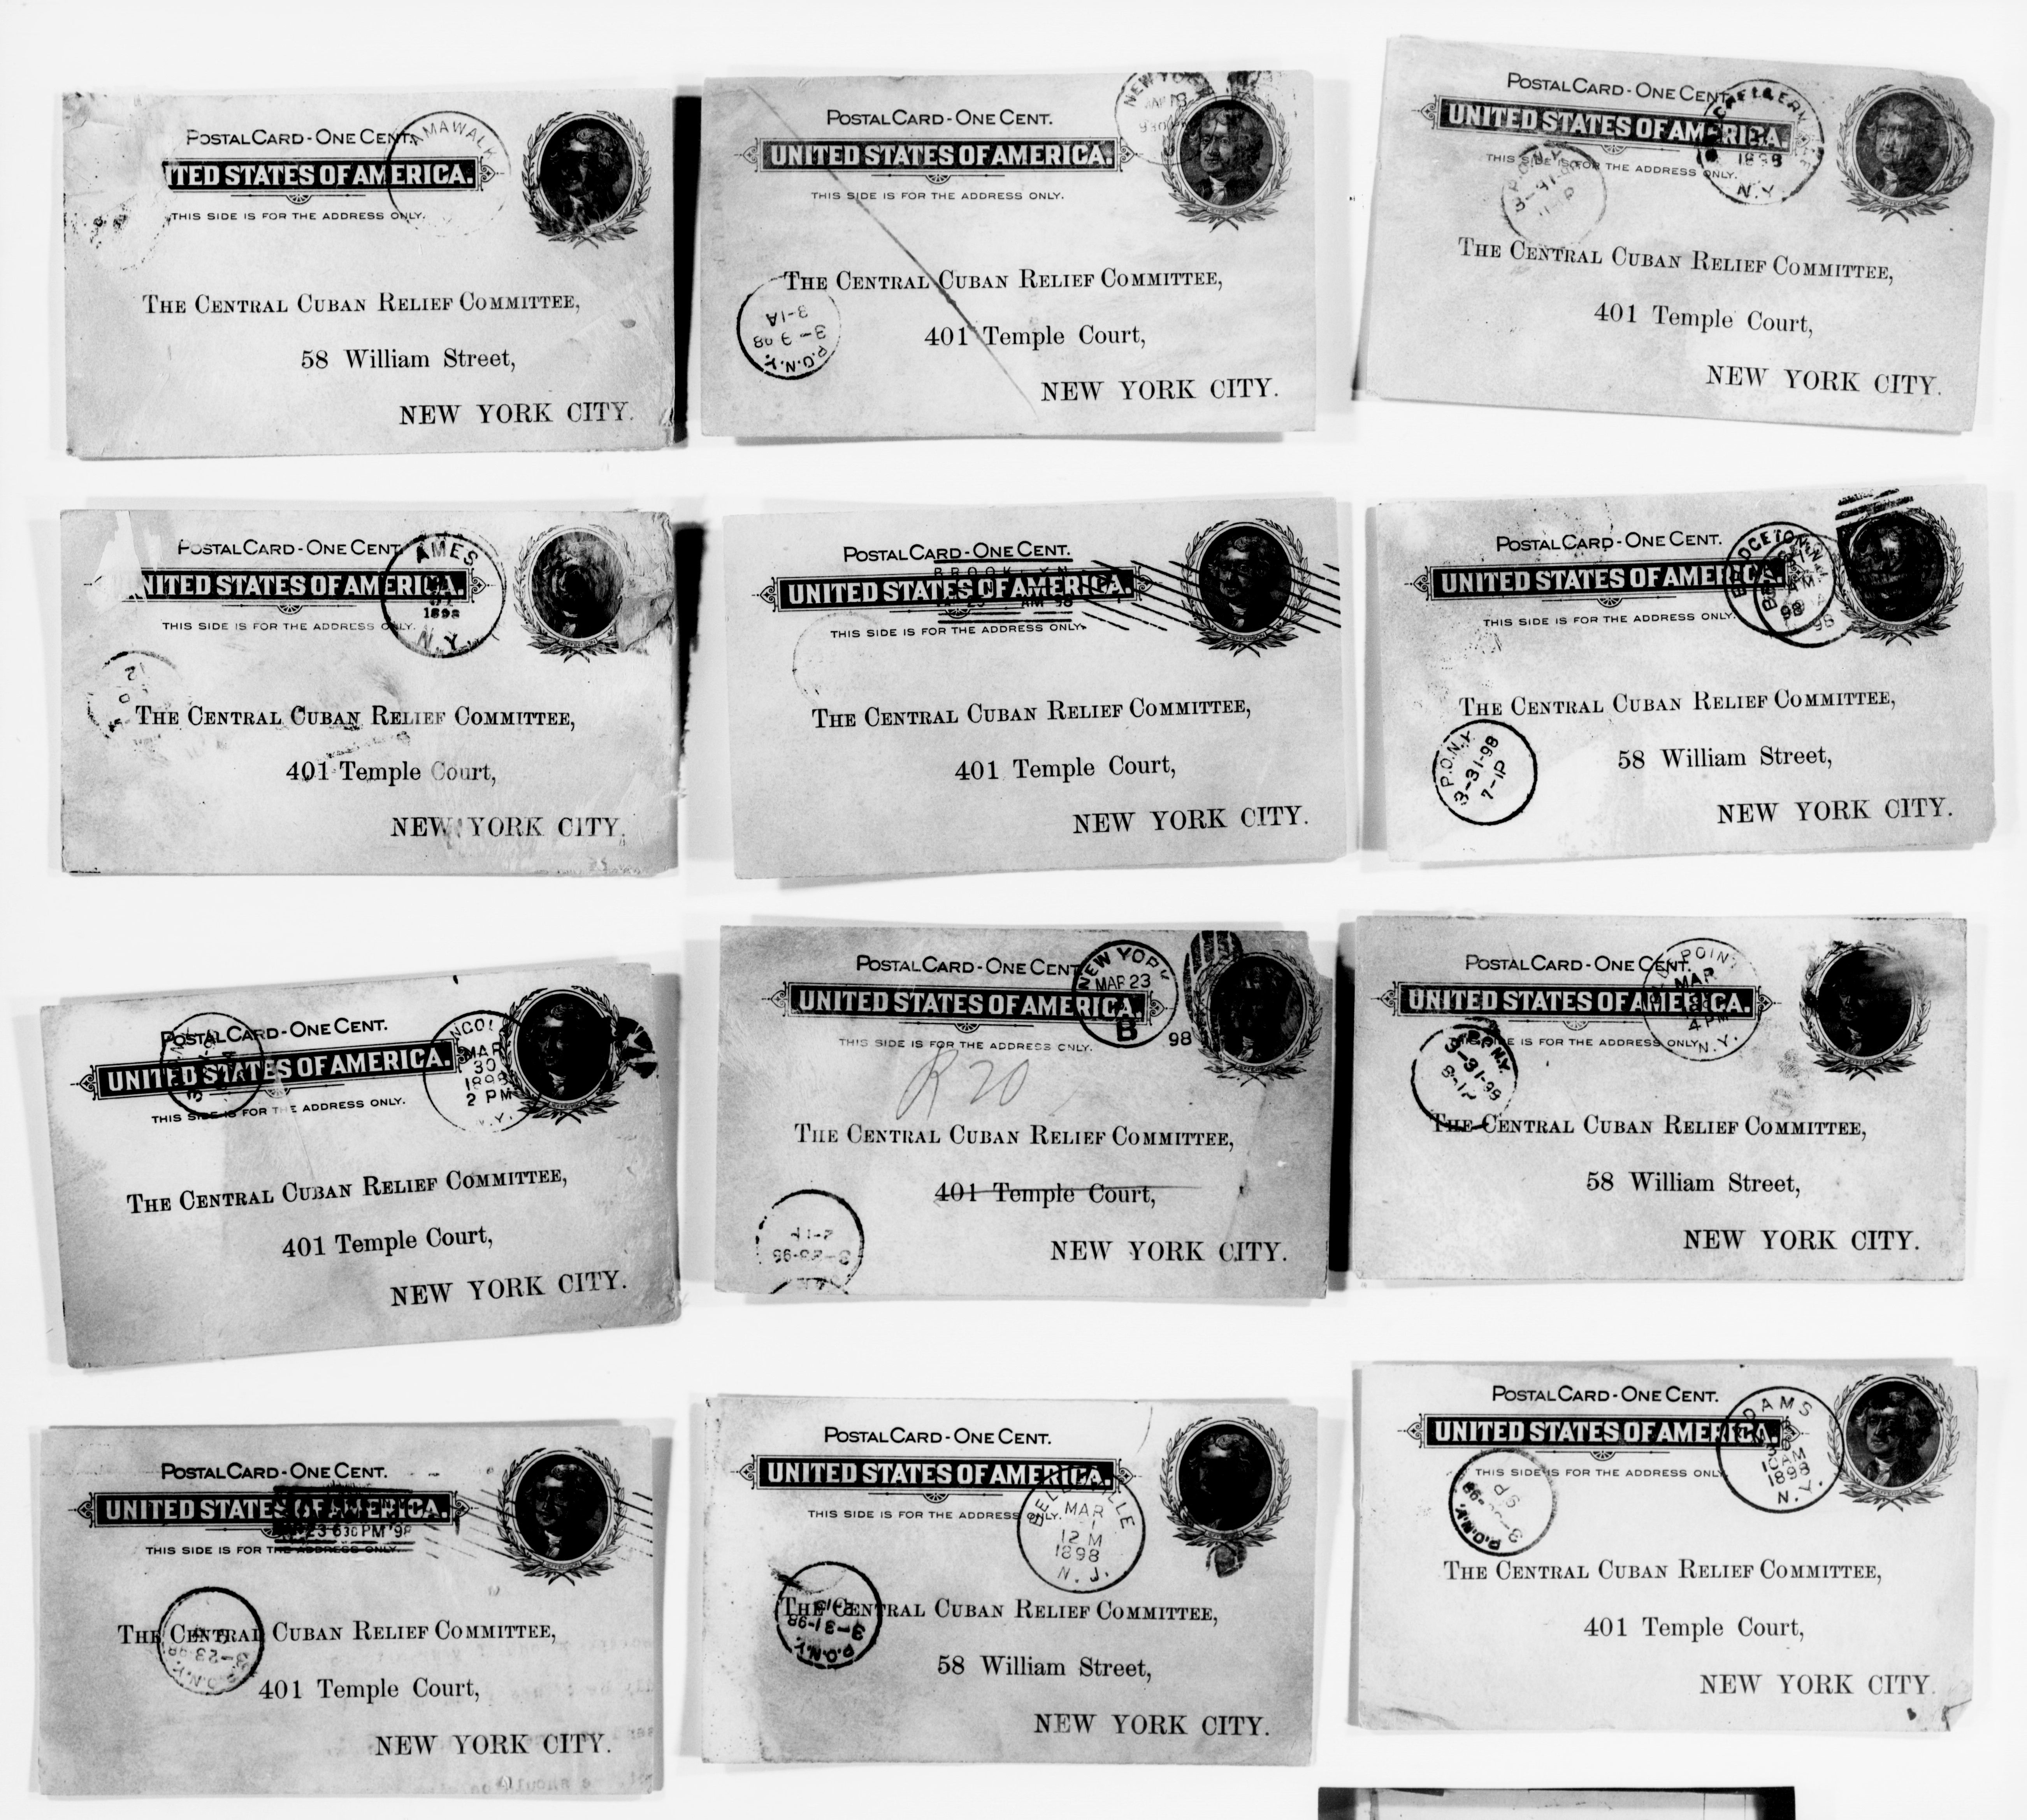 POSTAL CARD - ONE CENT.
ITED STATES OF AMERICA.
THIS SIDE IS FOR THE ADDRESS ONLY.
AMAWALK
THE CENTRAL CUBAN RELIEF COMMITTEE,
58 William Street,
NEW YORK CITY.
POSTAL CARD - ONE CENT.
UNITED STATES OF AMERICA.
THIS SIDE IS FOR THE ADDRESS ONLY.
NEW YO
THE CENTRAL CUBAN RELIEF COMMITTEE,
401 Temple Court,
NEW YORK CITY.
P.O.N.Y.
3-3 98
3-1A
POSTAL CARD - ONE CENT.
UNITED STATES OF AMERICA.
THIS SIDE IS FOR THE ADDRESS ONLY.
1898
N.Y.
P.O.N.Y.
THE CENTRAL CUBAN RELIEF COMMITTEE,
401 Temple Court,
NEW YORK CITY.
POSTAL CARD - ONE CENT
UNITED STATES OF AMERICA.
THIS SIDE IS FOR THE ADDRESS ONLY.
AMES
1898
N.Y.
THE CENTRAL CUBAN RELIEF COMMITTEE,
401 Temple Court,
NEW YORK CITY.
POSTAL CARD - ONE CENT.
UNITED STATES OF AMERICA.
THIS SIDE IS FOR THE ADDRESS ONLY.
THE CENTRAL CUBAN RELIEF COMMITTEE,
401 Temple Court,
NEW YORK CITY.
POSTAL CARD - ONE CENT.
UNITED STATES OF AMERICA.
THIS SIDE IS FOR THE ADDRESS ONLY.
98
THE CENTRAL CUBAN RELIEF COMMITTEE,
58 William Street,
NEW YORK CITY.
P.O.N.Y.
3-31-98
7-1P
POSTAL CARD - ONE CENT.
UNITED STATES OF AMERICA.
THIS SIDE IS FOR THE ADDRESS ONLY.
NCOL
MAR
30
1898
2 PM
N.Y.
THE CENTRAL CUBAN RELIEF COMMITTEE,
401 Temple Court,
NEW YORK CITY.
POSTAL CARD - ONE CENT
UNITED STATES OF AMERICA.
THIS SIDE IS FOR THE ADDRESS ONLY.
NEW YORK
MAR 23
B
98
R20
THE CENTRAL CUBAN RELIEF COMMITTEE,
401 Temple Court,
NEW YORK CITY.
POSTAL CARD - ONE CENT.
UNITED STATES OF AMERICA.
IS FOR THE ADDRESS ONLY
POINT
MAR
4 PM
N.Y.
P.O.N.Y.
3-31-98
THE CENTRAL CUBAN RELIEF COMMITTEE,
58 William Street,
NEW YORK CITY.
POSTAL CARD - ONE CENT.
UNITED STATES OF AMERICA.
23 630 PM 98
THIS SIDE IS FOR THE ADDRESS ONLY.
THE CENTRAL CUBAN RELIEF COMMITTEE,
3-23-98
P.O.N.Y.
401 Temple Court,
NEW YORK CITY.
POSTAL CARD - ONE CENT.
UNITED STATES OF AMERICA.
THIS SIDE IS FOR THE ADDRESS ONLY.
MAR
12 M
1898
N.J.
THE CENTRAL CUBAN RELIEF COMMITTEE,
3-31-98
P.O.N.Y.
58 William Street,
NEW YORK CITY.
POSTAL CARD - ONE CENT.
UNITED STATES OF AMERICA.
THIS SIDE IS FOR THE ADDRESS ONLY
ADAMS
AM
1898
N.Y.
P.O.N.Y.
THE CENTRAL CUBAN RELIEF COMMITTEE,
401 Temple Court,
NEW YORK CITY.